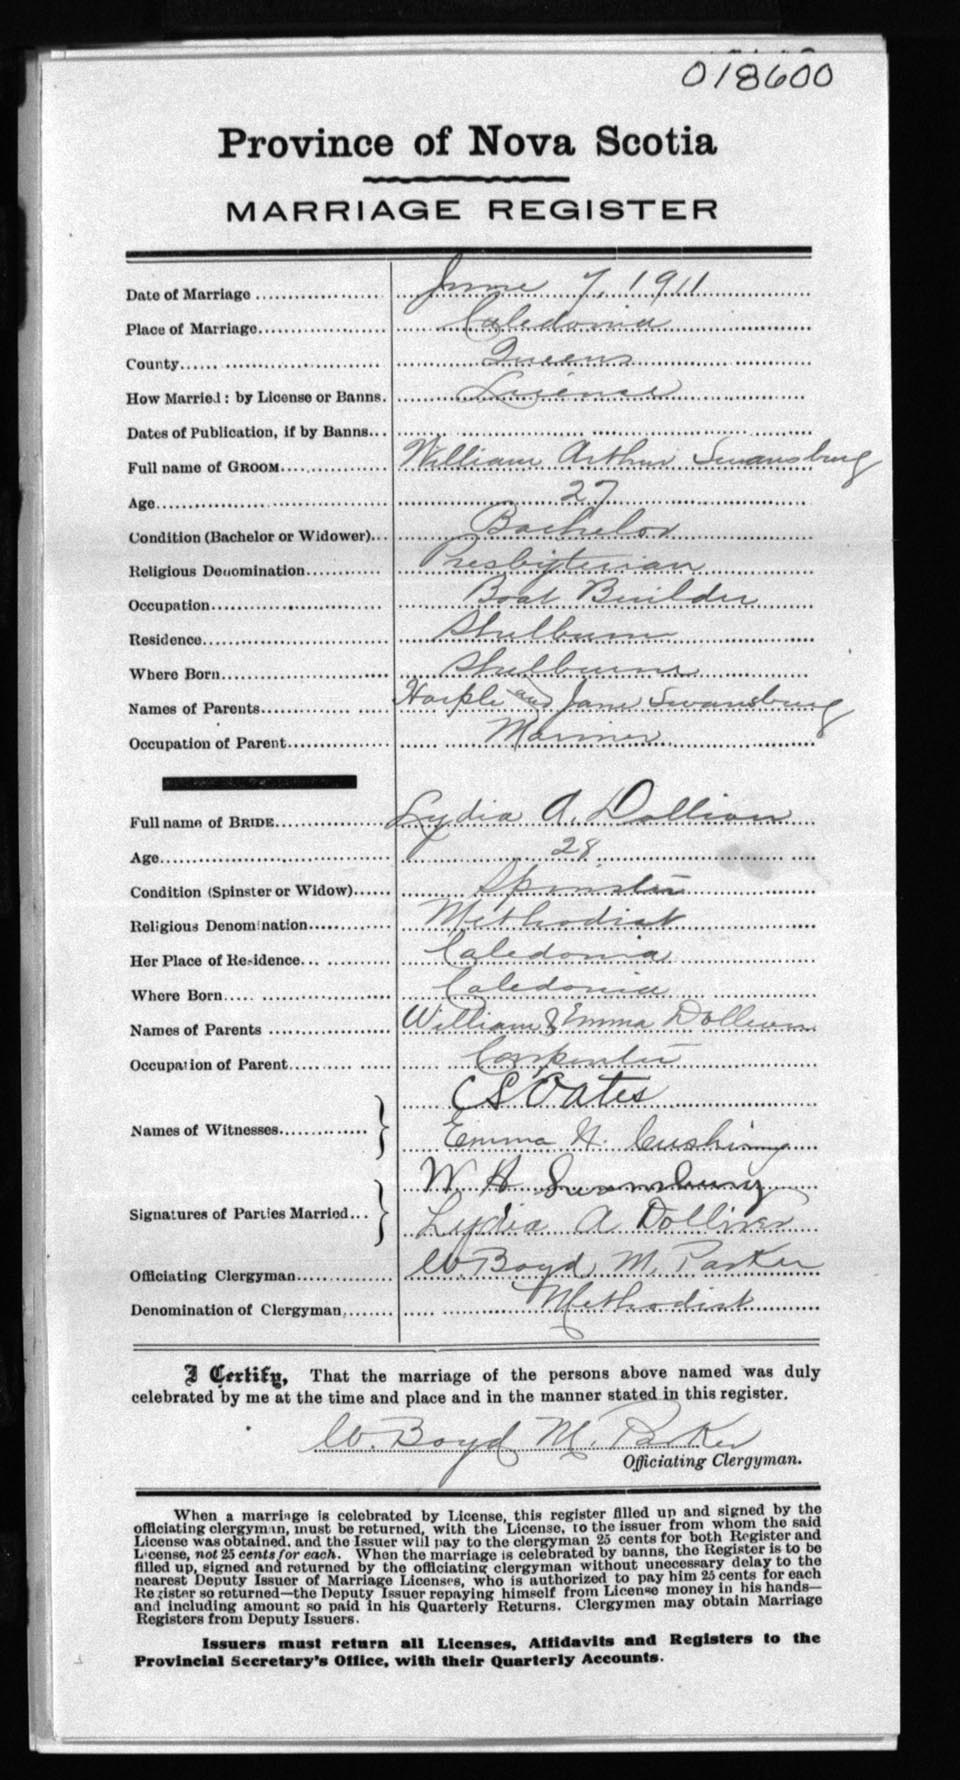 018600
Province of Nova Scotia
MARRIAGE REGISTER
Date of Marriage June 7, 1911
Place of Marriage Caledonia
County Queens
How Married: by License or Banns. License
Dates of Publication, if by Banns
Full name of GROOM William Arthur Swansburg
Age 27
Condition (Bachelor or Widower) Bachelor
Religious Denomination Presbyterian
Occupation Boat Builder
Residence Shelburne
Where Born Shelburne
Names of Parents and Jane Swansburg
Occupation of Parent Mariner
Full name of BRIDE Lydia A. Dolliver
Age 28
Condition (Spinster or Widow) Spinster
Religious Denomination Methodist
Her Place of Residence Caledonia
Where Born Caledonia
Names of Parents William & Emma Dolliver
Occupation of Parent Carpenter
C S Oates
Names of Witnesses
Emma H. Cushing
W A Swansburg
Signatures of Parties Married
Lydia A Dolliver
Officiating Clergyman W. Boyd M. Parker
Denomination of Clergyman Methodist
I Certify, That the marriage of the persons above named was duly
celebrated by me at the time and place and in the manner stated in this register.
W. Boyd M. Parker
Officiating Clergyman.
When a marriage is celebrated by License, this register filled up and signed by the
officiating clergyman, must be returned, with the License, to the issuer from whom the said
License was obtained, and the Issuer will pay to the clergyman 25 cents for both Register and
License, not 25 cents for each. When the marriage is celebrated by banns, the Register is to be
filled up, signed and returned by the officiating clergyman without unnecessary delay to the
nearest Deputy Issuer of Marriage Licenses, who is authorized to pay him 25 cents for each
Register so returned—the Deputy Issuer repaying himself from License money in his hands—
and including amount so paid in his Quarterly Returns. Clergymen may obtain Marriage
Registers from Deputy Issuers.
Issuers must return all Licenses, Affidavits and Registers to the
Provincial Secretary's Office, with their Quarterly Accounts.